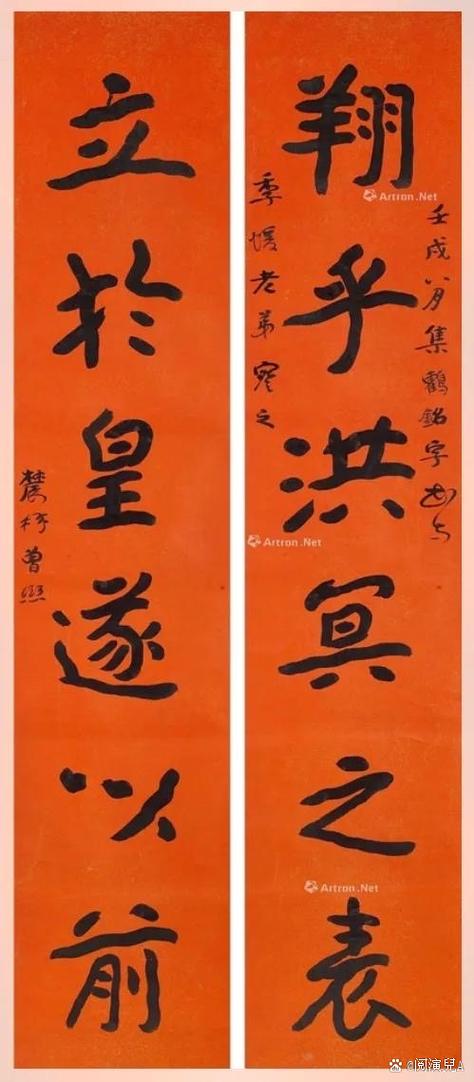 壬戌八月集鶴銘字書与
翔乎洪冥之表
季老弟之
立於皇遂以前
農髯曾熙
Artron.Net
Artron.Net
Artron.Net